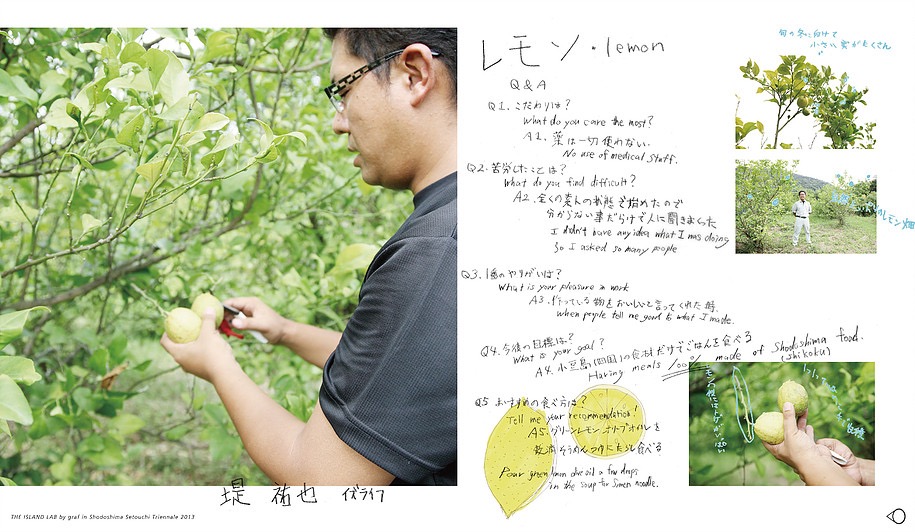 レモン・lemon
Q & A
Q1. こだわりは？
What do you care the most?
A1. 薬は一切使わない.
No use of medical stuff.
Q2. 苦労したことは？
What do you find difficult?
A2. 全くの素人の状態で始めたので
分からない事だらけで人に聞きまくった
I didn't have any idea what I was doing
so I asked so many people
Q3. 1番のやりがいは？
What is your pleasure in work
A3. 作っている物をおいしいと言ってくれた時.
when people tell me good to what I made.
Q4. 今後の目標は？
What is your goal?
A4. 小豆島(四国)の食材だけでごはんを食べる
Having meals 100% made of Shodoshima food.
(Shikoku)
Q5 おすすめの食べ方は？
Tell me your recommendation!
A5. グリーンレモン オリーブオイルを
数滴そうめんつゆにたらし食べる
Pour green lemon olive oil a few drops
in the soup for Somen noodle.
旬の冬に向けて
小さい実がたくさん
レモン畑
堤 祐也
THE ISLAND LAB by graf in Shodoshima Setouchi Triennale 2013